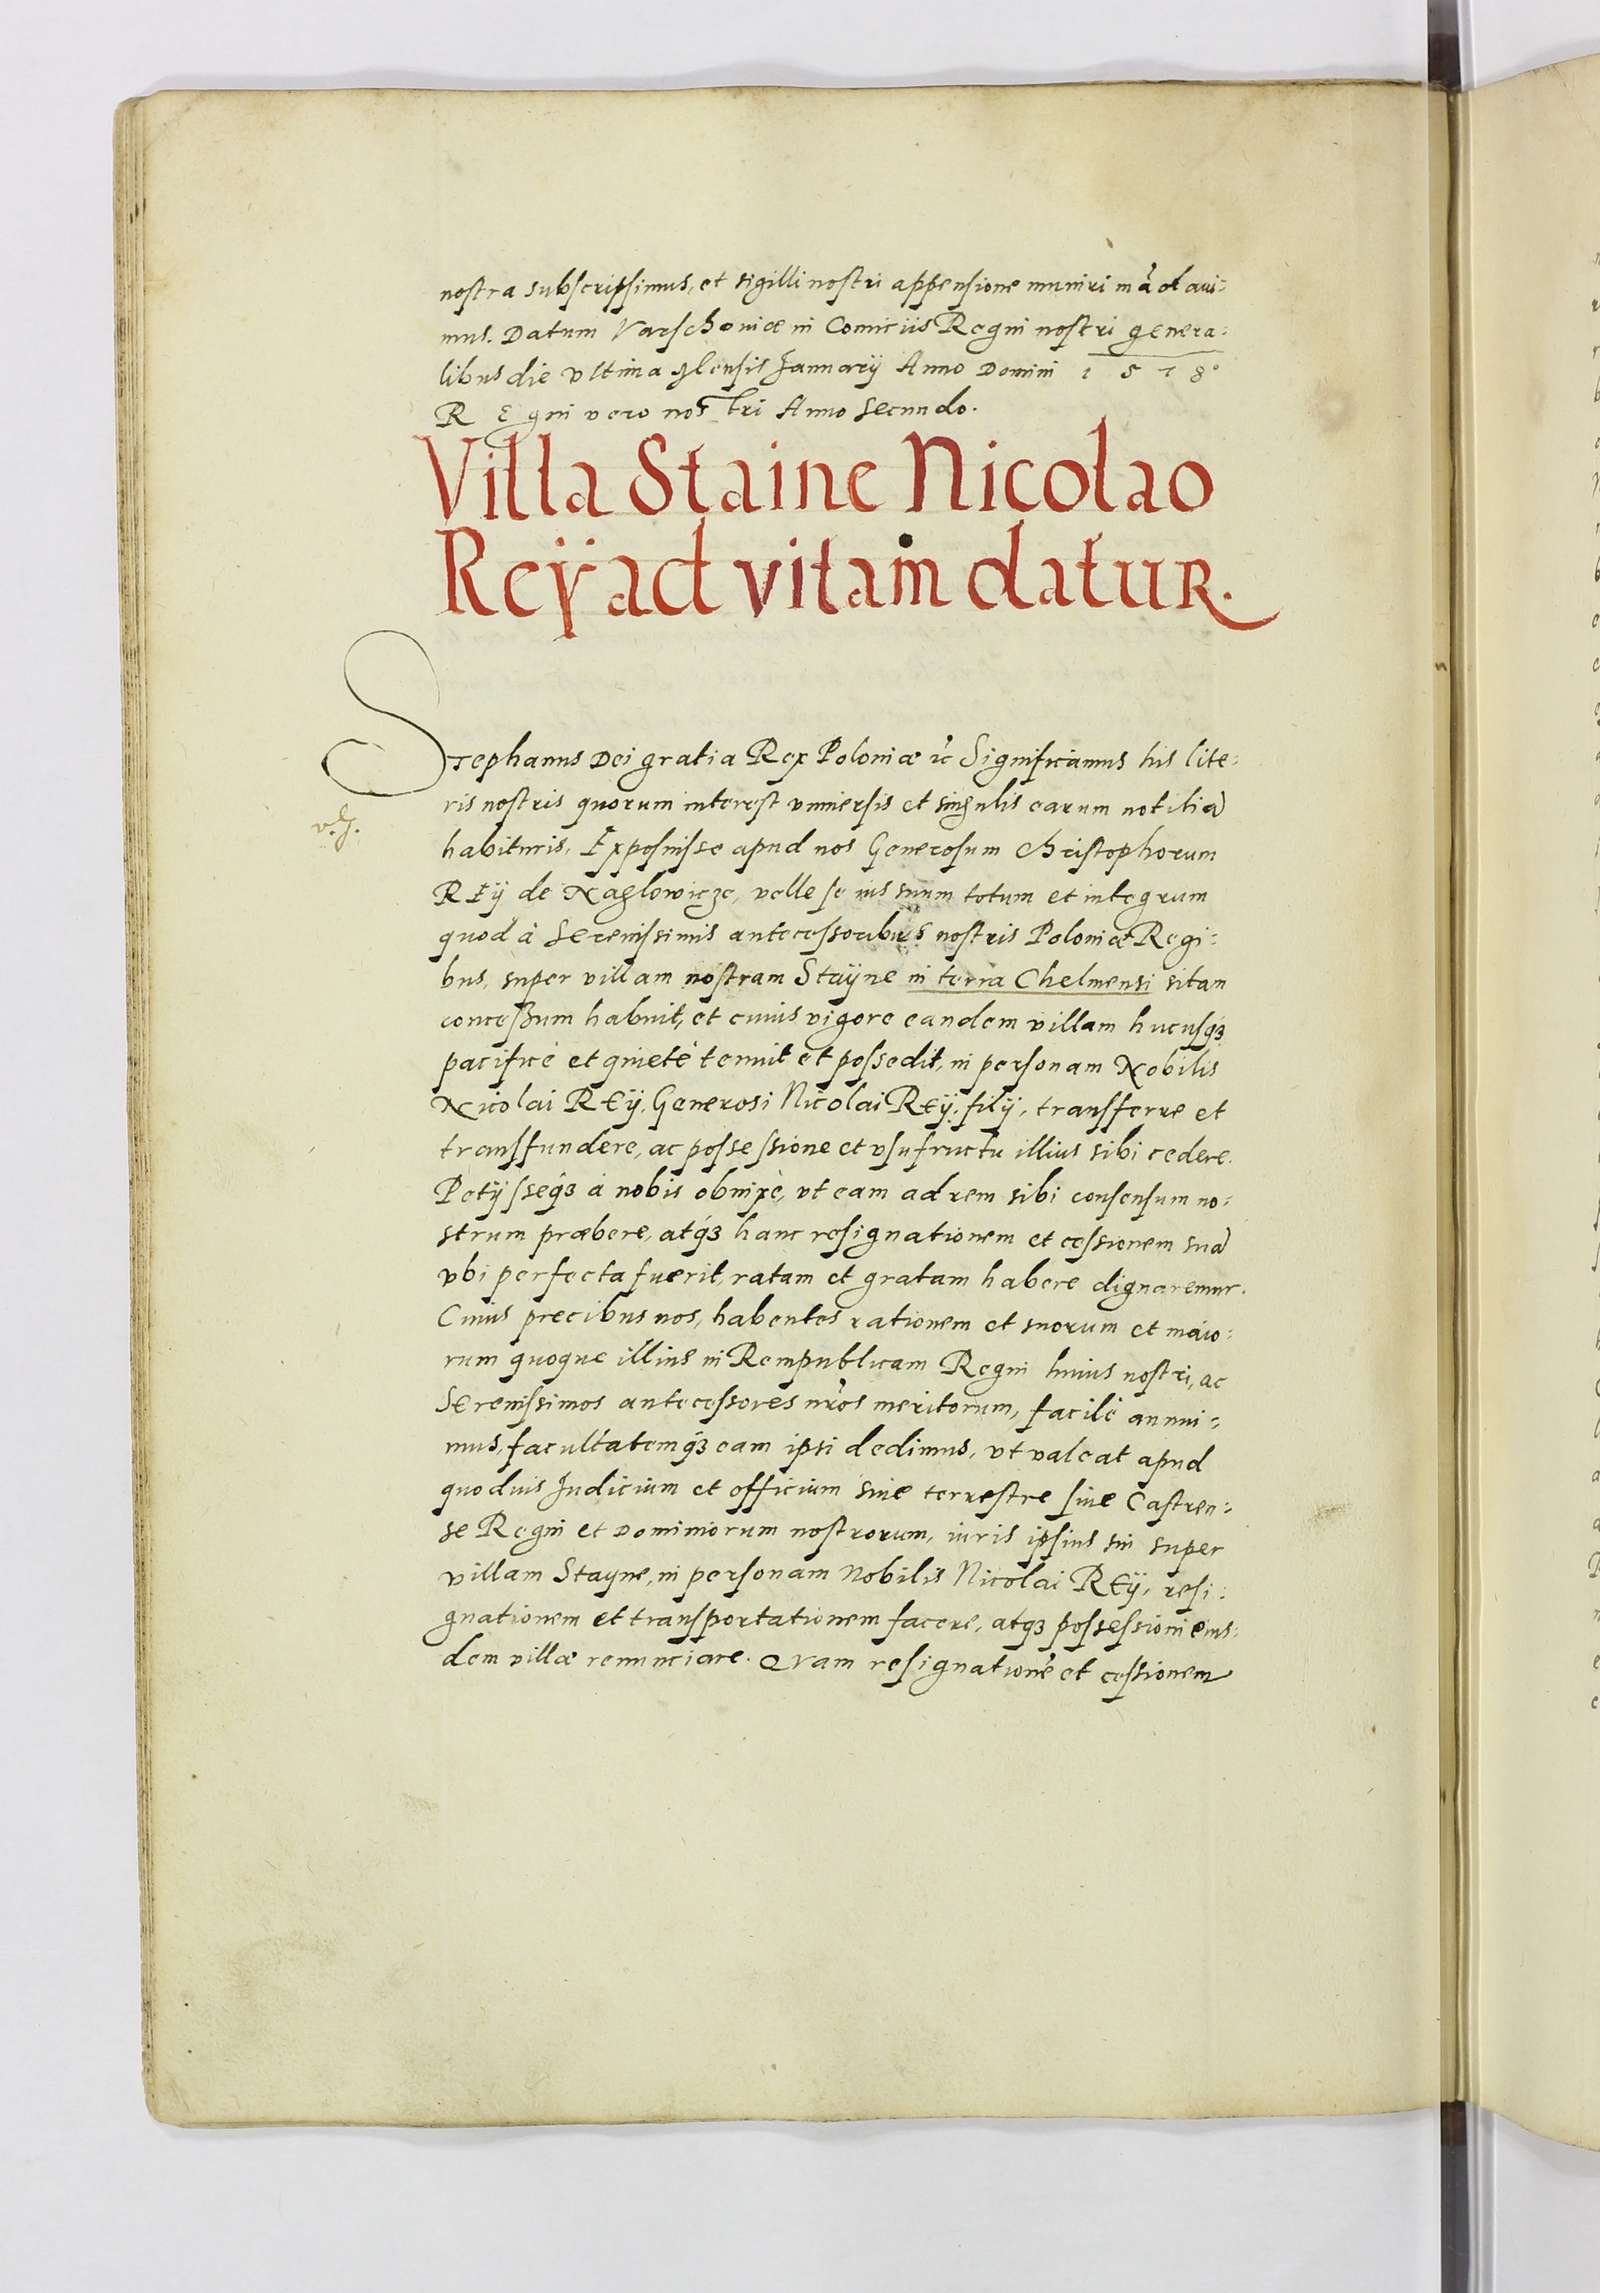 nostra subscripsimus, et sigilli nostri appensione muniri mãdaui:
mus. Datum Varschouiæ in Comiciis Regni nostri genera:
libus die vltima Mensis Januarÿ Anno Domini 1578°
REgni vero nostri Anno secundo.
Villa Staine Nicolao
Reÿ ad vitam datur.
Stephanus Dei gratia Rex Poloniæ ꝛc Significamus his lite:
ris nostris quorum interest vniuersis et singulis earum notitiã
habituris, Exposuisse apud nos Generosum Christophorum
REÿ de Naglowicze, velle se ius suum totum et integrum
quod à Serenissimis antecessoribus nostris Poloniæ Regi:
bus, super villam nostram Staÿne in terra Chelmensi sitam
concessum habuit, et cuius vigore eandem villam hucusq́ꝫ
pacificè et quietè tenuit et possedit, in personam Nobilis
Nicolai REÿ, Generosi Nicolai REÿ, filÿ, transferre et
transfundere, ac possessione et vsufructu illius sibi cedere.
Petÿsseq́ꝫ à nobis obnixè, vt eam ad rem sibi consensum no:
strum præbere, atq́ꝫ hanc resignationem et cessionem suã
vbi perfecta fuerit, ratam et gratam habere dignaremur.
Cuius precibus nos, habentes rationem et suorum et maio:
rum quoque illius in Rempublicam Regni huius nostri, ac
Serenissimos antecessores nr̃os meritorum, facilè annui:
mus, facultatemq́ꝫ eam ipsi dedimus, vt valeat apud
quoduis Judicium et officium siue terrestre siue Castren:
se Regni et Dominiorum nostrorum, iuris ipsius sui super
villam Stayne, in personam Nobilis Nicolai REÿ, resi:
gnationem et transportationem facere, atqꝫ possessioni eius:
dem villæ renunciare. Quam resignationẽ et cessionem